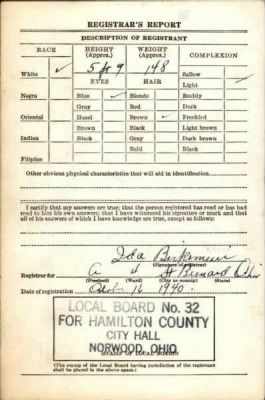 REGISTRAR'S REPORT
DESCRIPTION OF REGISTRANT
RACE HEIGHT (Approx.) WEIGHT (Approx.) COMPLEXION
White ✓ 5 ft 9 148 Sallow
Light ✓
EYES HAIR
Negro Blue ✓ Blonde Ruddy
Gray Red Dark
Oriental Hazel Brown ✓ Freckled
Brown Black Light brown
Indian Black Gray Dark brown
Bald Black
Filipino
Other obvious physical characteristics that will aid in identification
I certify that my answers are true; that the person registered has read or has had
read to him his own answers; that I have witnessed his signature or mark and that
all of his answers of which I have knowledge are true, except as follows:
Ida
(Signature of registrar)
Registrar for A 4 St Bernard Ohio
(Precinct) (Ward) (City or county) (State)
Date of registration October 16 1940.
LOCAL BOARD No. 32
FOR HAMILTON COUNTY
CITY HALL
NORWOOD, OHIO
(STAMP OF LOCAL BOARD)
(The stamp of the Local Board having jurisdiction of the registrant
shall be placed in the above space.)